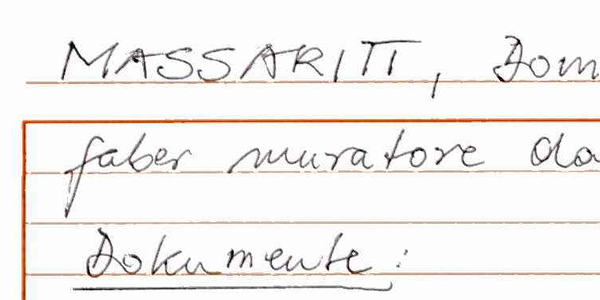 MASSARITT, Dom
faber muratore da
Dokumente: